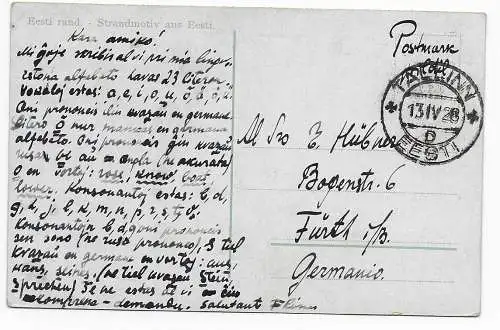 Eesti rand. - Strandmotiv aus Eesti.
Kara amiko!
Mi ĝoje skribis al vi pri nia lingvo.
Estona alfabeto havas 23 literon.
Vokaloj estas: a, e, i, o, u, õ, ä, ö, ü.
Oni prononcis ilin kvazaŭ en germana.
Litero õ nur mancas en germana
alfabeto. Oni prononcis ĝin kvazaŭ
rusan aŭ angla (ne akurata)
o en vortoj: rose, know, boat,
lower. Konsonantoj estas: b, d,
g, h, j, l, k, m, n, p, r, s, t, v.
Konsonantojn b, d, g oni prononcis
sen sono (ne rusa prononco), s tiel
kvazaŭ en germana en vortoj: aus,
(ne tiel kvazaŭ Stein,
sprechen) Se ne estas al vi ĉio
komprene - demandu. Salutant
Postmark
TALLINN
13 IV 28
EESTI
Al Sro E. Hübner
Bogenstr. 6
Fürth i/B.
Germanio.